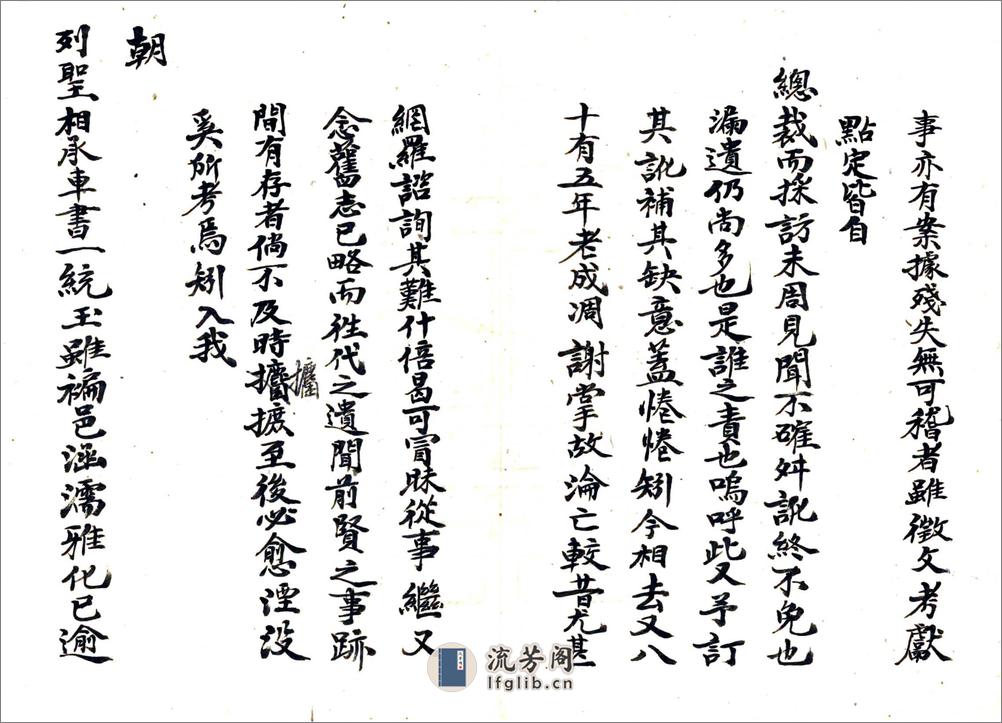 事亦有案據殘失無可稽者雖徵文考獻
點定皆自
總裁而採訪未周見聞不確舛訛終不免也
漏遺仍尚多也是誰之責也嗚呼此又予訂
其訛補其缺意蓋惓惓矧今相去又八
十有五年老成凋謝掌故淪亡較昔尤甚
網羅諮詢其難什倍曷可冒昧從事繼又
念舊志已略而往代之遺聞前賢之事跡
間有存者倘不及時攟摭至後必愈湮沒
攟
奚所考焉矧入我
朝
列聖相承車書一統玉雖褊邑涵濡雅化已逾
流芳阁
lfglib.cn